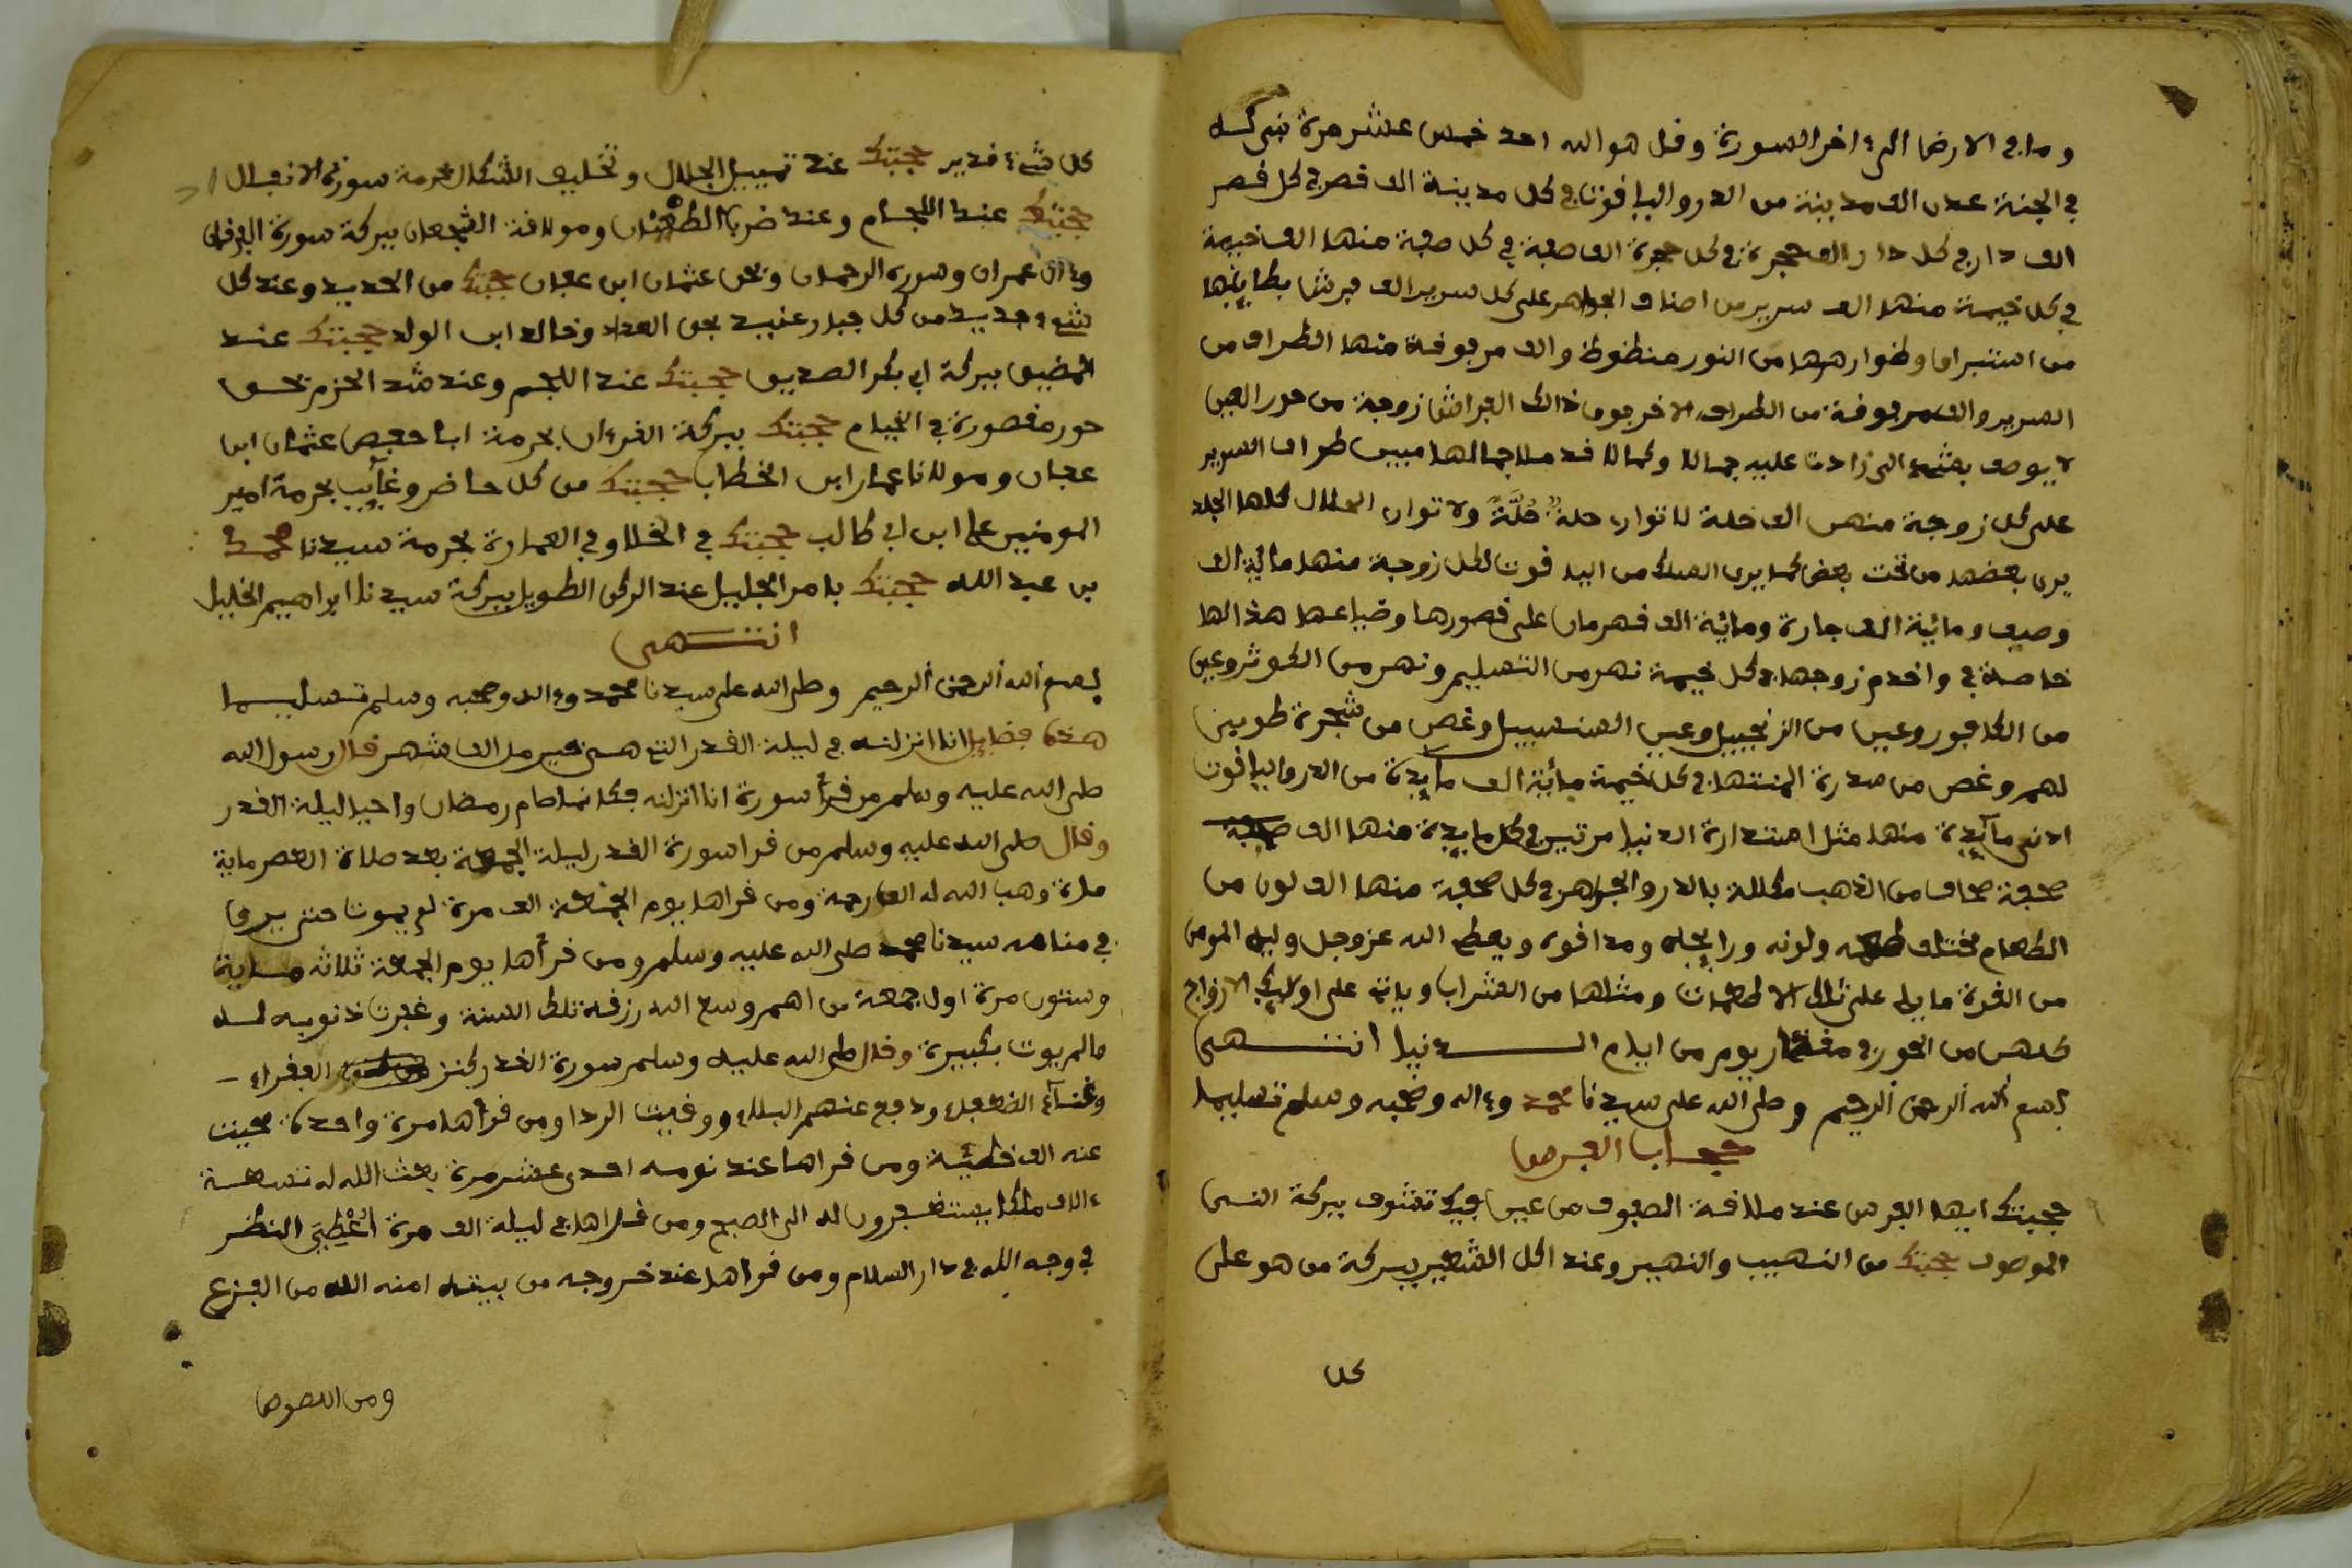 وما في الارض الى ءاخر السورة وقل هو الله احد خمس عشر مرة بنى له
في الجنة عدن الف مدينة من الدر والياقوت في كل مدينة الف قصر في كل قصر
الف دار في كل دار الف حجرة في كل حجرة الف صفة في كل صفة منها الف خيمة
في كل خيمة منها الف سرير من اصناف الجواهر على كل سرير الف فرش بطاينها
من استبراق وظوارهرها من النور منظوظ والف مرفوفة منها الطراف من
السرير والف مرفوفة من الطراف الاخر فوق ذلك الفراش زوجة من حور العين
لا يوصف بشيء الى زادت عليه جمالا وكمالا قد ملا جمالها مبين طراف السرير
على كل زوجة منهن الف حلة لا توار حلة حُلَّةً ولا توار الحلال كلها الجلد
يرى بعضها من تحت بعض كما يرى السلك من اليا قوت لكل زوجة منها ماية الف
وصيف وماية الف جارة وماية الف قهرمان على قصورها وضياعها هذا لها
خاصة في واخدم زوجها في كل خيمة نهر من التسليم ونهر من الكوثر وعين
من الكافور وعين من الزنجبيل وعين السنسبيل وغصن من شجرة طوبى
لهم وغصن من سدرة المنتها في كل خيمة ماية الف مايدة من الدر والياقوت
ادنى مايدة منها مثل استدارة الدنيا مرتين في كل مايدة منها الف صحفة
صحفة صحاف من الذهب مكللة بالدر والجواهر في كل صحفة منها الف لون من
الطعام مختلف طعمه ولونه ورايحته ومذاقوه ويعطى الله عزوجل وليه المومن
من القوة ما ياتى على تلك الاطعمات ومثلها من الشراب وياتى على اولايك الازواج
كلهن من الحور في مقدار يوم من ايام الدنيا انتهى
بسم الله الرحمن الرحيم وصلى الله على سيدنا محمد وءاله وصحبه وسلم تسليما
حجاب الفرس
حجبتك ايها الفرس عند ملاقة الصفوف من عين فيك تشوف ببركة النبي
الموصوف حجبتك من النهيب والنهير وعند اكل الشعير ببركة من هو على
كل
كل شيء قدير حجبتك عند تسبيل الجلال وتخليف الشكال بحرمة سورة الانفال
حجبتك عند اللجام وعند ضرب الطعان وموللاقة الشجعان ببركة سورة الفرقان
وءال عمران وسورة الرحمان وبحق عثمان ابن عفان حجبتك من الحديد وعند كل
شيء جديد من كل جبار عنيد بحق العداد وخالد ابن الوليد حجبتك عند
المضيق ببركة ابي بكر الصديق حجبتك عند اللجم وعند شد الحزم بحق
حور مقصورة في الخيام حجبتك ببركة القرءان بحرمة ابا حفص عثمان ابن
عفان ومولانا عمار ابن الخطاب حجبتك من كل حاضر وغايب بحرمة امير
المومنين علي ابن ابي طالب حجبتك في الخلا وفي العمارة بحرمة سيدنا محمد
بن عبد الله حجبتك بامر الجليل عند الركن الطويل ببركة سيدنا ابراهيم الخليل
انتهى
بسم الله الرحمن الرحيم وصلى الله على سيدنا محمد وءاله وصحبه وسلم تسليما
هذه فضايل انا انزلنه في ليلة القدر التي هي خير من الف شهر قال رسول الله
صلى الله عليه وسلم من قرأ سورة انا انزلنه فكانما صام رمضان واحيا ليلة القدر
وقال صلى الله عليه وسلم من قرا سورة القدر ليلة الجمعة بعد صلاة العصر ماية
مرة وهب الله له الف رحمة ومن قراها يوم الجمعة الف مرة لم يموت حتى يرى
في منامه سيدنا محمد صلى الله عليه وسلم ومن قرأها يوم الجمعة ثلاثة ماية
وستون مرة اول جمعة من اهم وسع الله رزقه تلك السنة وغفرت ذنوبه له
مالم يوت بكبيرة وقال صلى الله عليه وسلم سورة القدر كنز الفقراء
وغناء الضعفاء ودافع عنهم البلاء ووقيت الردا ومن قرأها مرة واحدة محيت
عنه الف خطيئة ومن قراها عند نومه احدى عشر مرة بعث الله له تسعة
ءالاف ملكا يستغفرون له الى الصبح ومن قراها في ليلة الف مرة أُعْطِيَ النظر
في وجه الله في دار السلام ومن قراها عند خروجه من بيته امنه الله من الفزع
ومن اللصوص